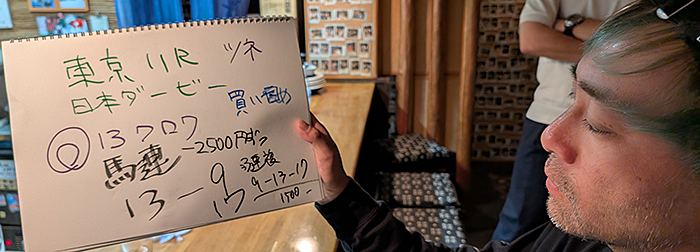 東京11R ツネ
日本ダービー
買い目め
◎13クロワ
馬連 -2500円づつ
13-9
17
3連複
9-13-17
1500-